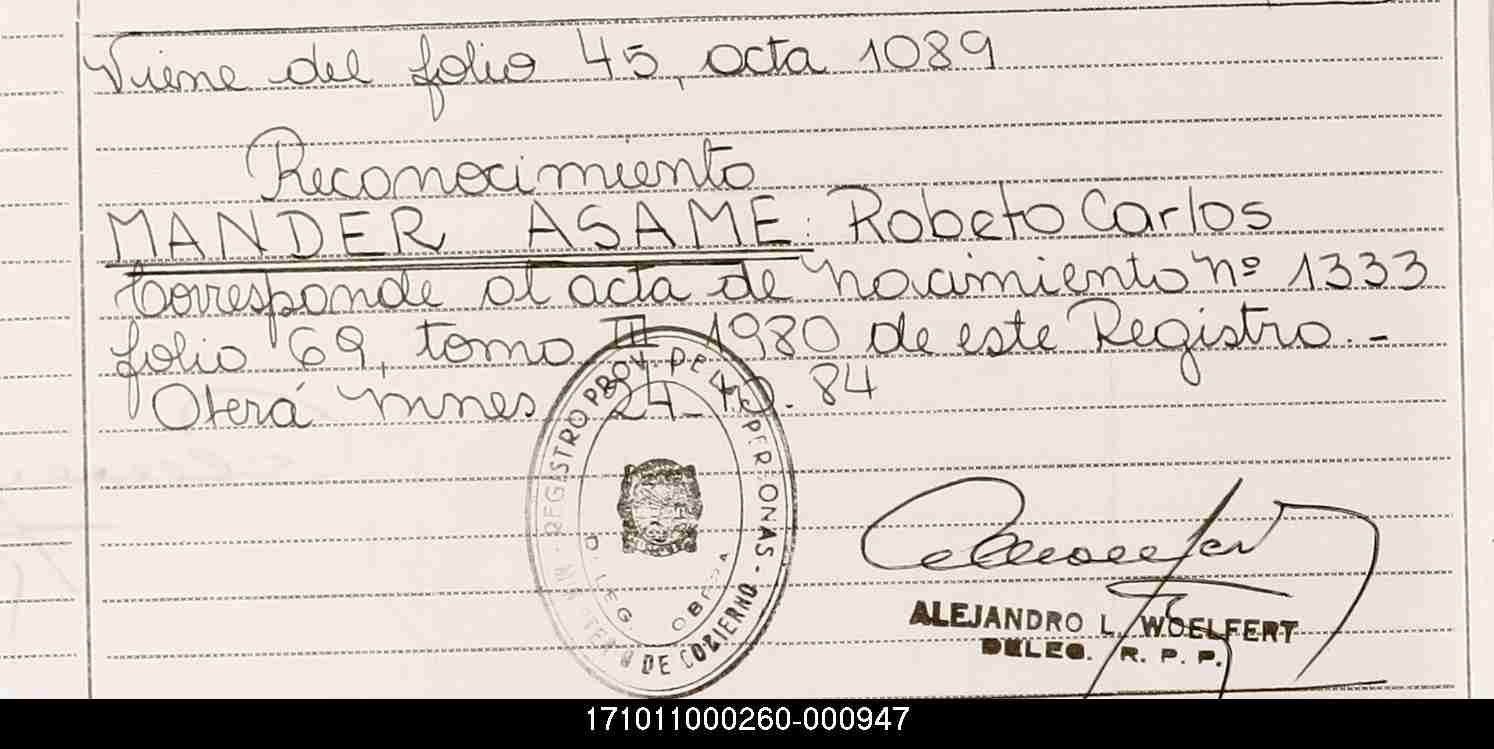 Viene del folio 45, acta 1089
Reconocimiento
MANDER ASAME: Robeto Carlos
Corresponde al acta de nacimiento nº 1333
folio 69, tomo III 1980 de este Registro.-
Oberá Mnes 24-10-84
REGISTRO PROV. DE L PERSONAS - DE GOBIERNO
DELEG. OBERA
ALEJANDRO L. WOELFERT
DELEG. R. P. P.
171011000260-000947